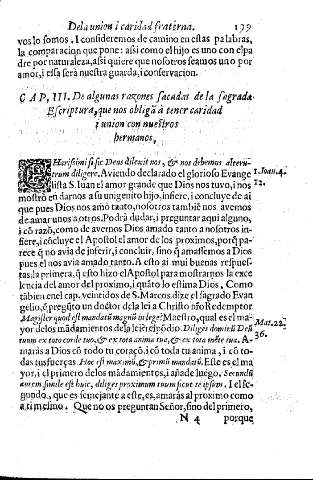 De la union i caridad fraterna. 139
vos lo somos. I consideremos de camino en estas palabras,
la comparacion que pone: assi como el hijo es uno con el pa
dre por naturaleza, assi quiere que nosotros seamos uno por
amor, i essa serà nuestra guarda, i conservacion.
CAP, III. De algunas razones sacadas de la sagrada
Escriptura, que nos obligã à tener caridad
i union con nuestros
hermanos,
CHarissimi si sic Deus dilexit nos, & nos debemus alteru-
trum diligere. Aviendo declarado el glorioso Evange 1. Ioan. 4.
lista S. Iuan el amor grande que Dios nos tuvo, i nos 12,
mostrò en darnos a su unigenito hijo, infiere, i concluye de ai
que pues Dios nos amò tanto, nosotros tambiẽ nos avemos
de amar unos a otros. Podrà dudar, i preguntar aqui alguno,
i cõ razõ, como de avernos Dios amado tanto a nosotros in
fiere, i cõcluye el Apostol el amor de los proximos, porq̃ pa-
rece q̃ no avia de inferir, i concluir, sino q̃ amassemos a Dios
pues el nos avia amado tanto. A esto ai mui buenas respues-
tas: la primera, q̃ esto hizo el Apostol para mostrarnos la exce
lencia del amor del proximo, i quãto lo estima Dios, Como
tãbien en el cap. veinti dos de S. Marcos, dize el sagrado Evan
gelio, q̃ pregũto un doctor de la lei a Christo nr̃o Redemptor
Magister quod est mandatũ magnũ in lege? Maestro, qual es el ma Mat. 22.
yor de los mãdamientos de la lei? respõdio. Diliges dominũ Deũ 36.
tuum ex toto corde tuo, & ex tota anima tua, & ex tota mẽte tua. A-
marás a Dios cõ todo tu coraçõ, i cõ toda tu anima, i cõ to-
das tus fuerças. Hoc est maximũ, & primũ mandatũ. Este es el ma
yor, i el primero de los mãdamientos, i añade luego. Secundũ
autem simile est huic, diliges proximum tuum sicut te ipsum. I el se-
gundo, que es semejante a este, es, amaràs al proximo como
a ti mesmo. Que no os preguntan Señor, sino del primero,
N 4 porque